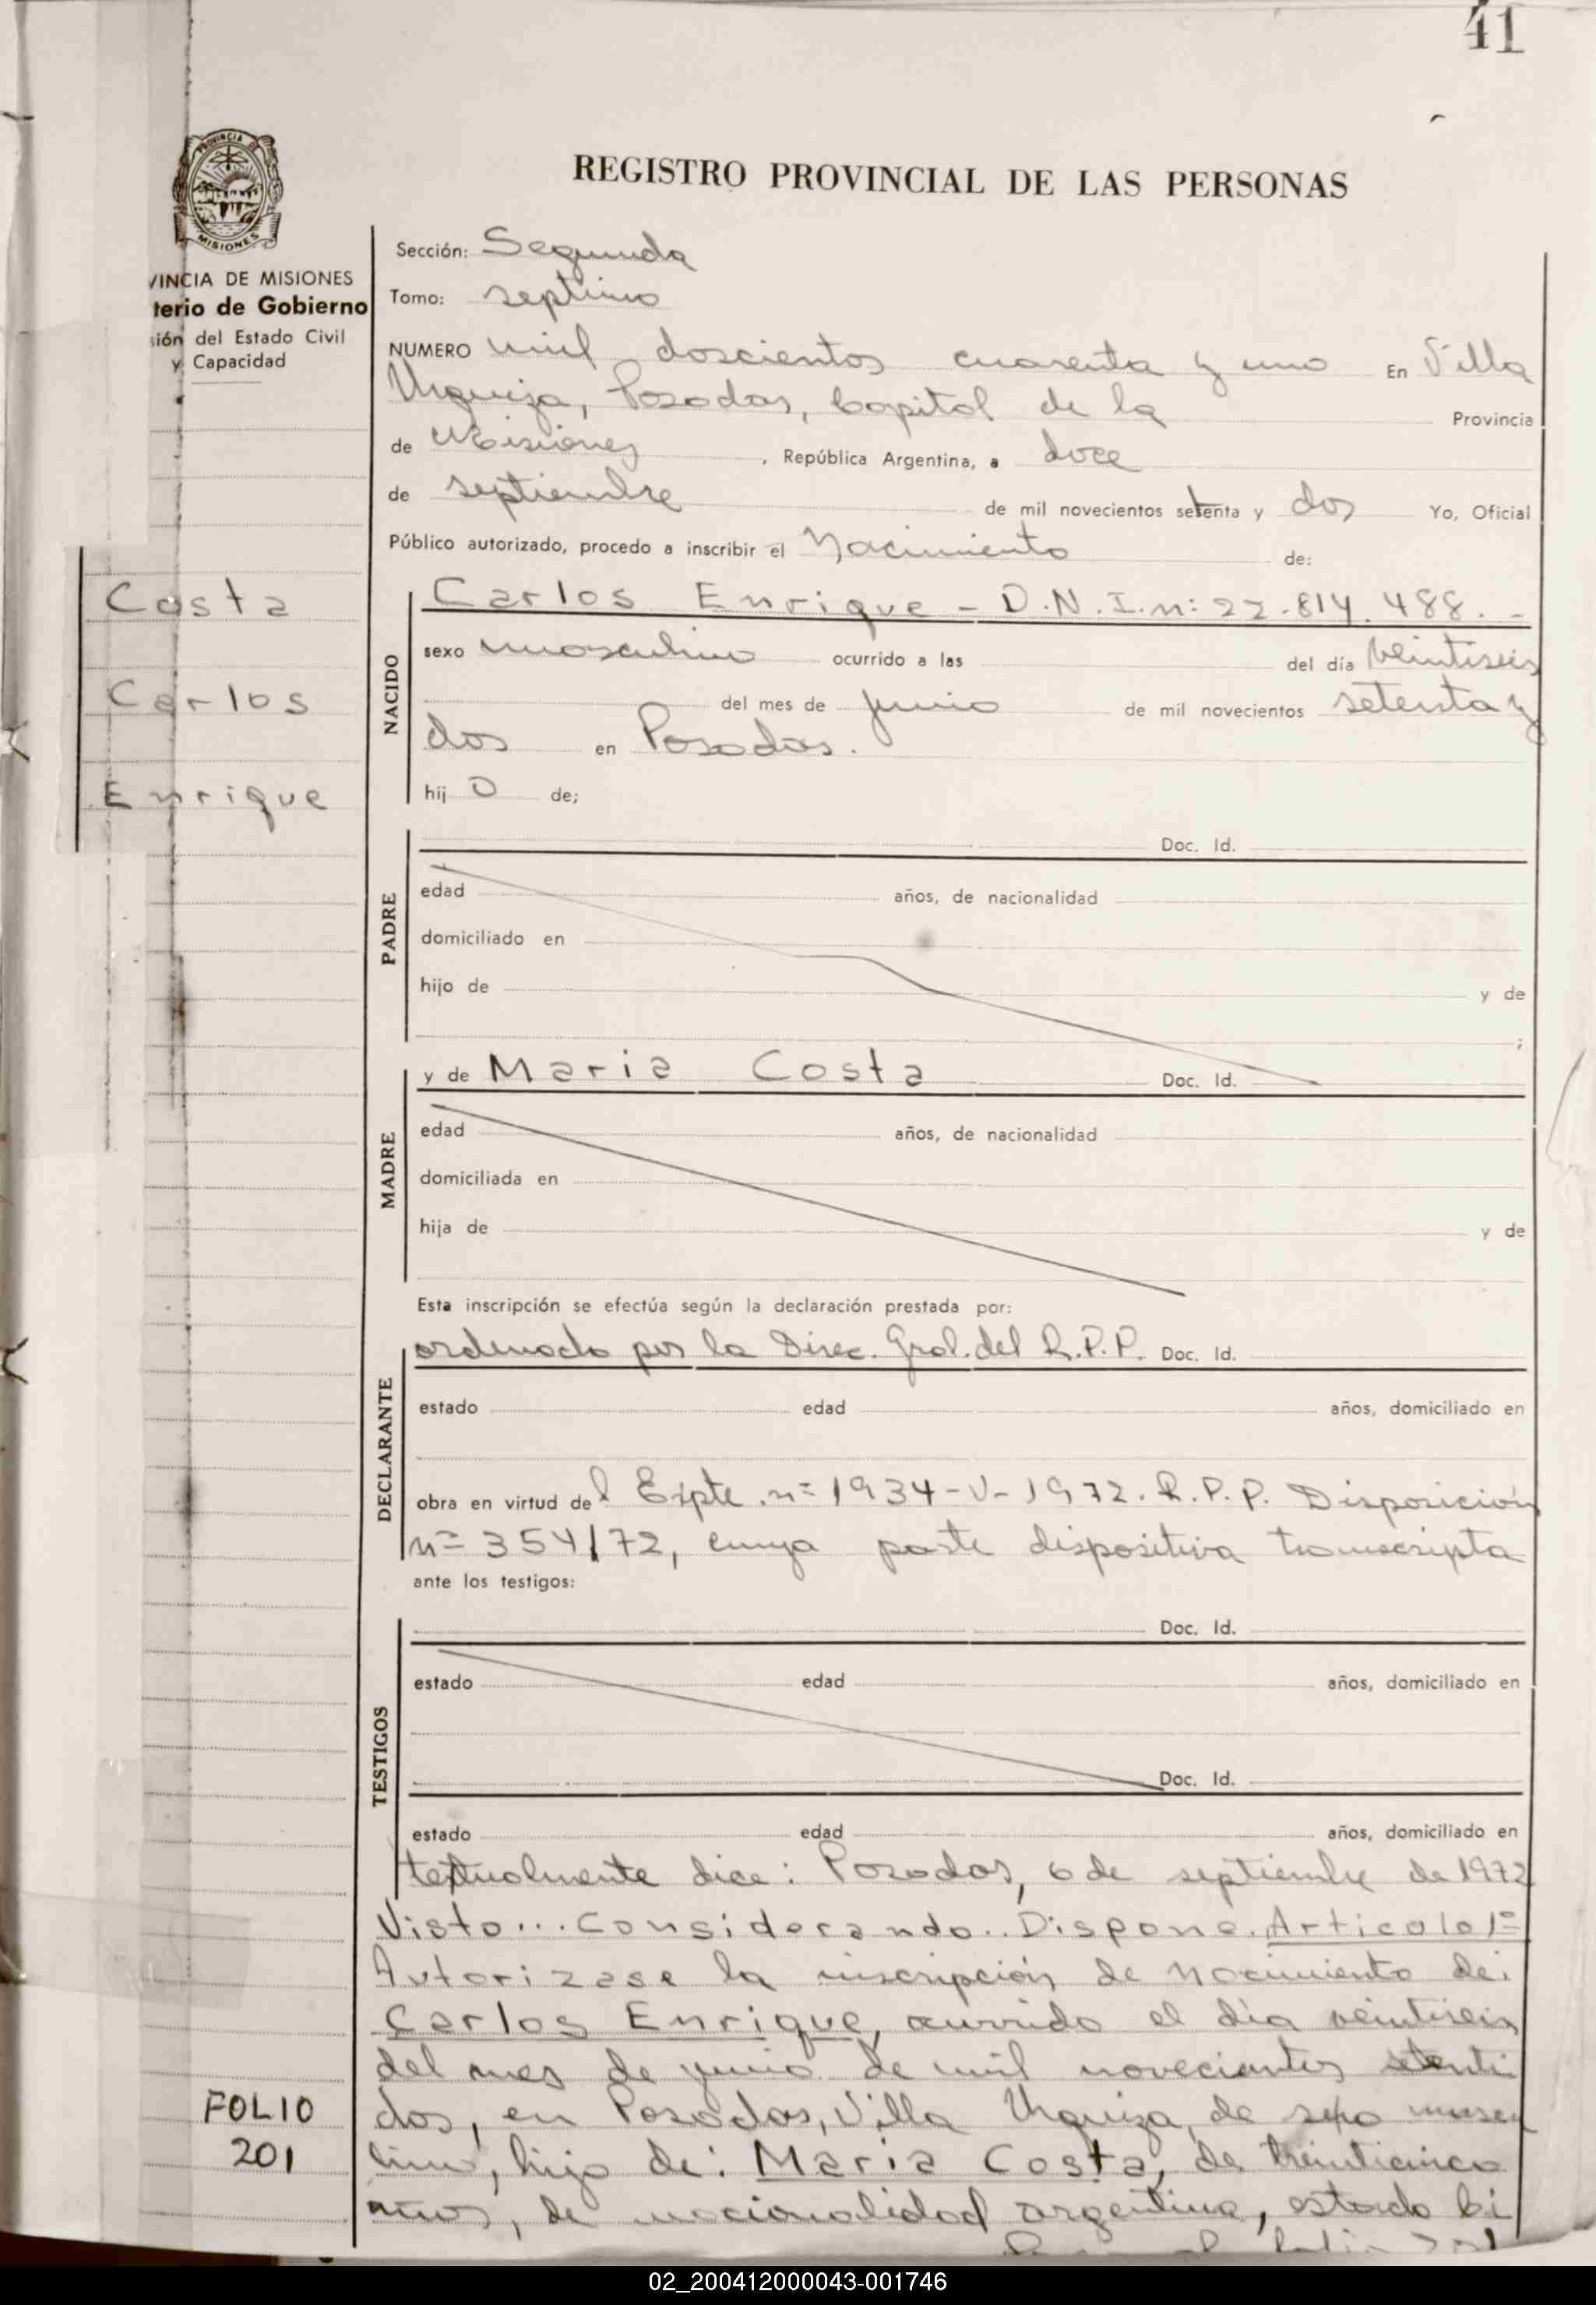 41
PROVINCIA DE
MISIONES
REGISTRO PROVINCIAL DE LAS PERSONAS
VINCIA DE MISIONES
terio de Gobierno
sión del Estado Civil
y Capacidad
Sección: Segunda
Tomo: septimo
NUMERO mil doscientos cuarenta y uno En Villa
Urquiza, Posadas, Capital de la Provincia
de Misiones, República Argentina, a doce
de septiembre de mil novecientos setenta y dos Yo, Oficial
Público autorizado, procedo a inscribir el Nacimiento de:
Costa
Carlos
Enrique
NACIDO
Carlos Enrique - D.N.I. n: 22.814.488.-
sexo masculino ocurrido a las del día veintiseis
del mes de junio de mil novecientos setenta y
dos en Posadas.
hij o de;
PADRE
Doc. Id.
edad años, de nacionalidad
domiciliado en
hijo de y de
;
MADRE
y de Maria Costa Doc. Id.
edad años, de nacionalidad
domiciliada en
hija de y de
Esta inscripción se efectúa según la declaración prestada por:
DECLARANTE
ordenado por la Direc. Gral. del R.P.P. Doc. Id.
estado edad años, domiciliado en
obra en virtud del Expte. n= 1934-V-1972. R.P.P. Disposición
n= 354/72, cuya parte dispositiva transcripta
ante los testigos:
TESTIGOS
Doc. Id.
estado edad años, domiciliado en
Doc. Id.
estado edad años, domiciliado en
textualmente dice: Posadas, 6 de septiembre de 1972
Visto... Considerando.. Dispone. Articulo 1=
Autorizase la inscripción de nacimiento de:
Carlos Enrique, ocurrido el día veintiseis
del mes de junio de mil novecientos setenti
dos, en Posadas, Villa Urquiza, de sexo mascu
lino, hijo de: Maria Costa, de treinticinco
años, de nacionalidad argentina, estado ci
FOLIO
201
02_200412000043-001746